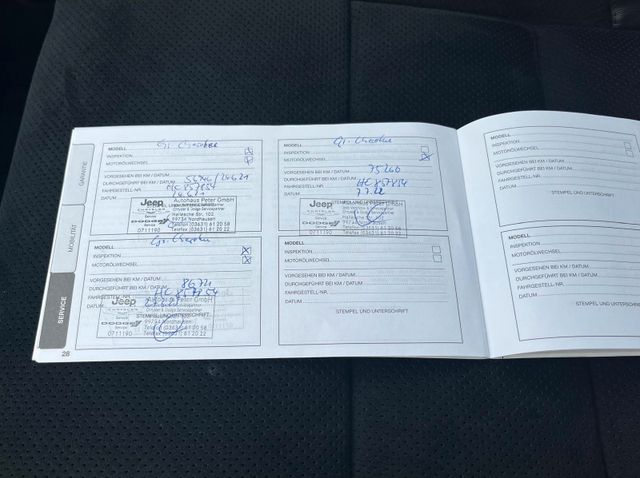 GARANTIE
MOBILITÄT
SERVICE
28
Gr. Cherokee
MODELL
INSPEKTION
MOTORÖLWECHSEL
VORGESEHEN BEI KM / DATUM
DURCHGEFÜHRT BEI KM / DATUM
FAHRGESTELL-NR.
DATUM
Jeep
CHRYSLER
DODGE
Service
0711190
Autohaus Peter GmbH
Hallesche Str. 102
99734 Nordhausen
Telefon (03631) 61 20 58
Telefax (03631) 61 20 22
Gr. Cherokee
MODELL
INSPEKTION
MOTORÖLWECHSEL
VORGESEHEN BEI KM / DATUM
DURCHGEFÜHRT BEI KM / DATUM
75260
FAHRGESTELL-NR.
DATUM
7.7.22
STEMPEL UND UNTERSCHRIFT
Jeep
CHRYSLER
DODGE
0711190
99734 Nordhausen
Telefon (03631) 61 20 58
Telefax (03631) 61 20 22
Gr. Cherokee
MODELL
INSPEKTION
MOTORÖLWECHSEL
VORGESEHEN BEI KM / DATUM
DURCHGEFÜHRT BEI KM / DATUM
FAHRGESTELL-NR.
DATUM
STEMPEL UND UNTERSCHRIFT
Jeep
CHRYSLER
DODGE
Service
0711190
Autohaus Peter GmbH
99734 Nordhausen
Telefon (03631) 61 20 58
Telefax (03631) 61 20 22
MODELL
INSPEKTION
MOTORÖLWECHSEL
VORGESEHEN BEI KM / DATUM
DURCHGEFÜHRT BEI KM / DATUM
FAHRGESTELL-NR.
DATUM
STEMPEL UND UNTERSCHRIFT
MODELL
INSPEKTION
MOTORÖLWECHSEL
VORGESEHEN BEI KM / DATUM
DURCHGEFÜHRT BEI KM / DATUM
FAHRGESTELL-NR.
DATUM
STEMPEL UND UNTERSCHRIFT
MODELL
INSPEKTION
MOTORÖLWECHSEL
VORGESEHEN BEI KM / DATUM
DURCHGEFÜHRT BEI KM / DATUM
FAHRGESTELL-NR.
DATUM
STEMPEL UND UNTERSCHRIFT